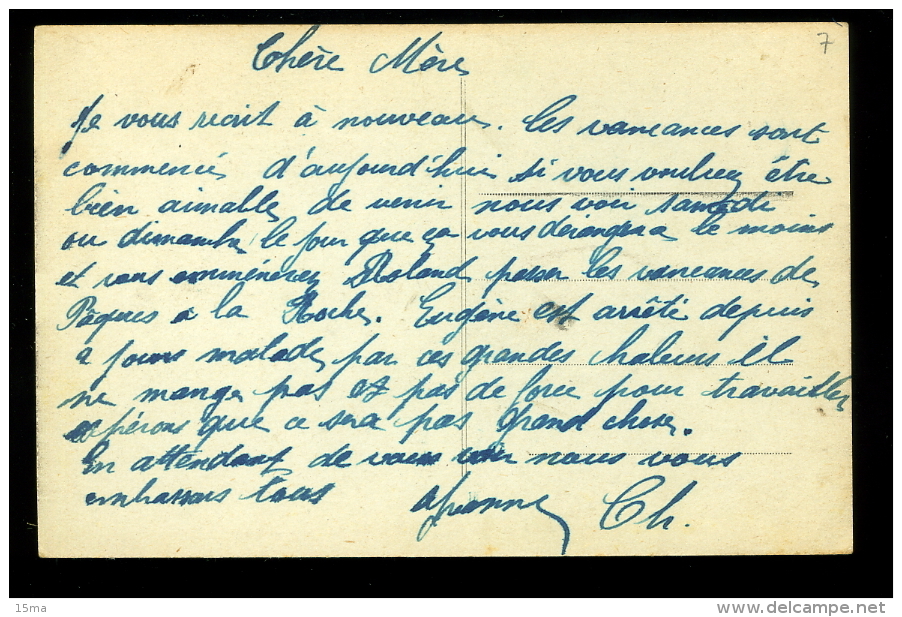 7
Chère Mère
Je vous récrit à nouveau. les vancances sont
commencé d'aujourd'hui si vous voulrez être
bien aimable de venir nous voir samedi
ou dimanche le jour que ça vous dérangera le moins
et vous emmènerez Roland passer les vancances de
Pâques à la Roche. Eugène est arrêté depuis
4 jours malade par ces grandes chaleurs il
ne mange pas et pas de force pour travailler
espérons que ce sera pas grand chose.
En attendant de vous voir nous vous
embrassons tous Jeanne Ch.
15ma
www.delcampe.net